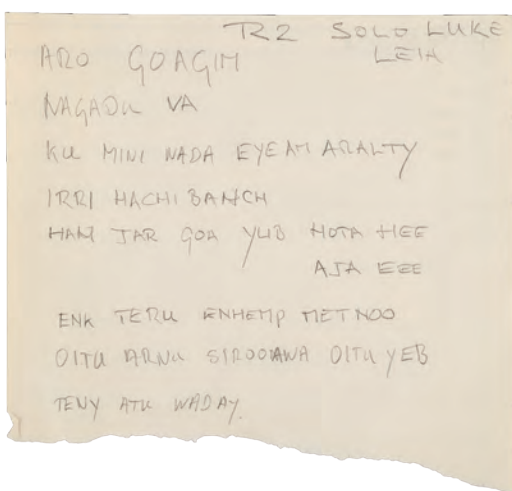 R2 SOLO LUKE
LEIA
ARO GOAGIM
NAGADU VA
KU MINI NADA EYE AM ARALTY
IRRI HACHI BANCH
HAM JAR GOA YUB HOTA HEE
AJA EEE
ENK TERU ENHEMP MET NOO
OITU ARNU SIROODAWA OITU YEB
TENY ATU WADAY.